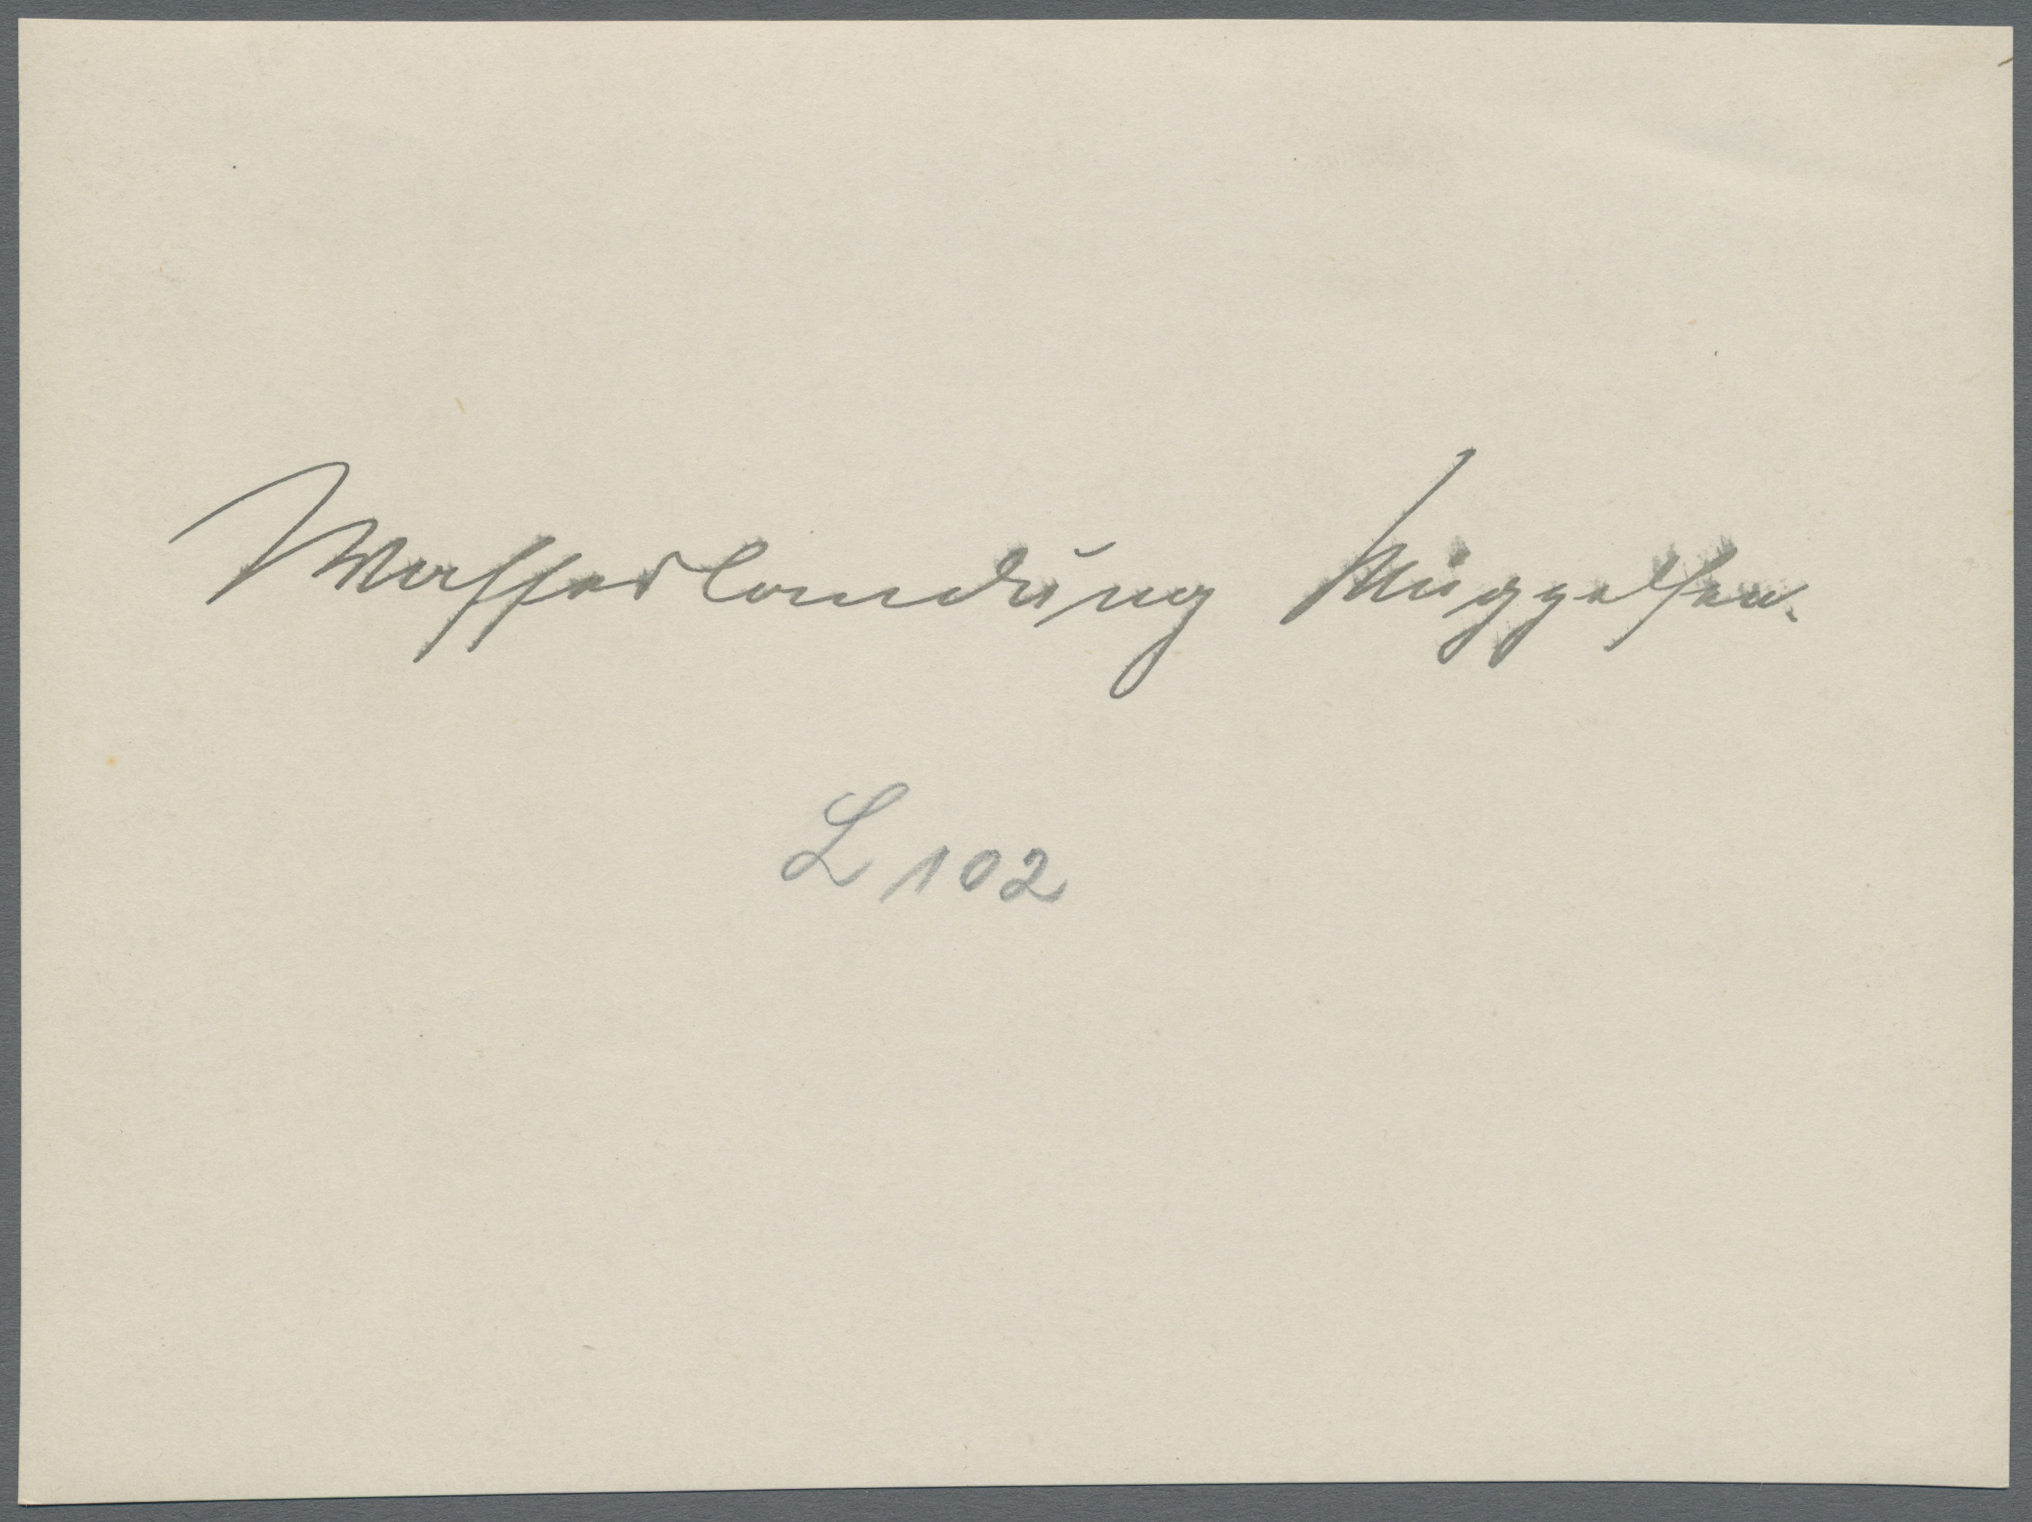 Wasserlandung Müggelsee.
L 102